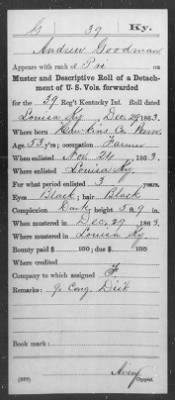 G 39 Ky.
Andrew Goodman
Appears with rank of Pri on
Muster and Descriptive Roll of a Detach-
ment of U. S. Vols. forwarded
for the 39 Reg't Kentucky Inf. Roll dated
Louisa Ky, Dec 29, 1863.
Where born Hawkins Co Tenn
Age 33 y'rs; occupation Farmer
When enlisted Nov 24, 1863.
Where enlisted Louisa Ky.
For what period enlisted 3 years.
Eyes Black; hair Black
Complexion Dark; height 5 ft. 9 in.
When mustered in Dec. 29, 1863
Where mustered in Louisa Ky
Bounty paid $ 100; due $ 100
Where credited
Company to which assigned F.
Remarks: 9. Cong. Dist
Book mark:
Copyist.